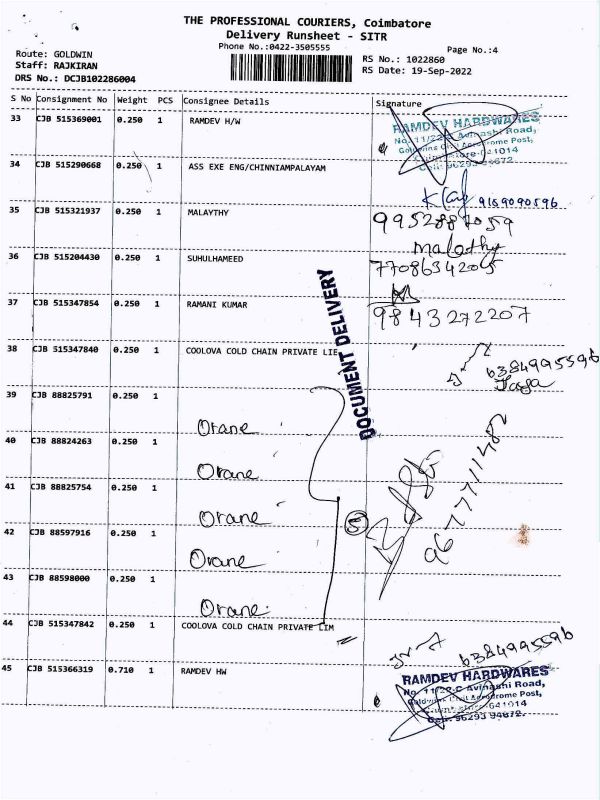 THE PROFESSIONAL COURIERS, Coimbatore
Delivery Runsheet - SITR
Phone No.:0422-3505555
Page No.:4
Route: GOLDWIN
Staff: RAJKIRAN
DRS No.: DCJB102286004
RS No.: 1022860
RS Date: 19-Sep-2022
S No Consignment No Weight PCS Consignee Details Signature
33 CJB 515369001 0.250 1 RAMDEV H/W
RAMDEV HARDWARES
No. 11/22-C Avinashi Road,
Goldwins Civil Aerodrome Post,
34 CJB 515290668 0.250 1 ASS EXE ENG/CHINNIAMPALAYAM
9159090596
35 CJB 515321937 0.250 1 MALAYTHY
9952887059
Malathy
36 CJB 515204430 0.250 1 SUHULHAMEED
77086342005
37 CJB 515347854 0.250 1 RAMANI KUMAR
9843272207
DOCUMENT DELIVERY
38 CJB 515347840 0.250 1 COOLOVA COLD CHAIN PRIVATE LIE
6384995596
39 CJB 88825791 0.250 1
Orane
40 CJB 88824263 0.250 1
Orane
41 CJB 88825754 0.250 1
Orane
5
9677711482
42 CJB 88597916 0.250 1
Orane
43 CJB 88598000 0.250 1
Orane
44 CJB 515347842 0.250 1 COOLOVA COLD CHAIN PRIVATE LIM
6384995596
45 CJB 515366319 0.710 1 RAMDEV HW
RAMDEV HARDWARES
No. 11/22-C Avinashi Road,
Goldwins Civil Aerodrome Post,
Coimbatore-641014
Cell: 96293 94672.